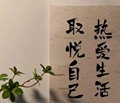 热愛生活
取悦自己